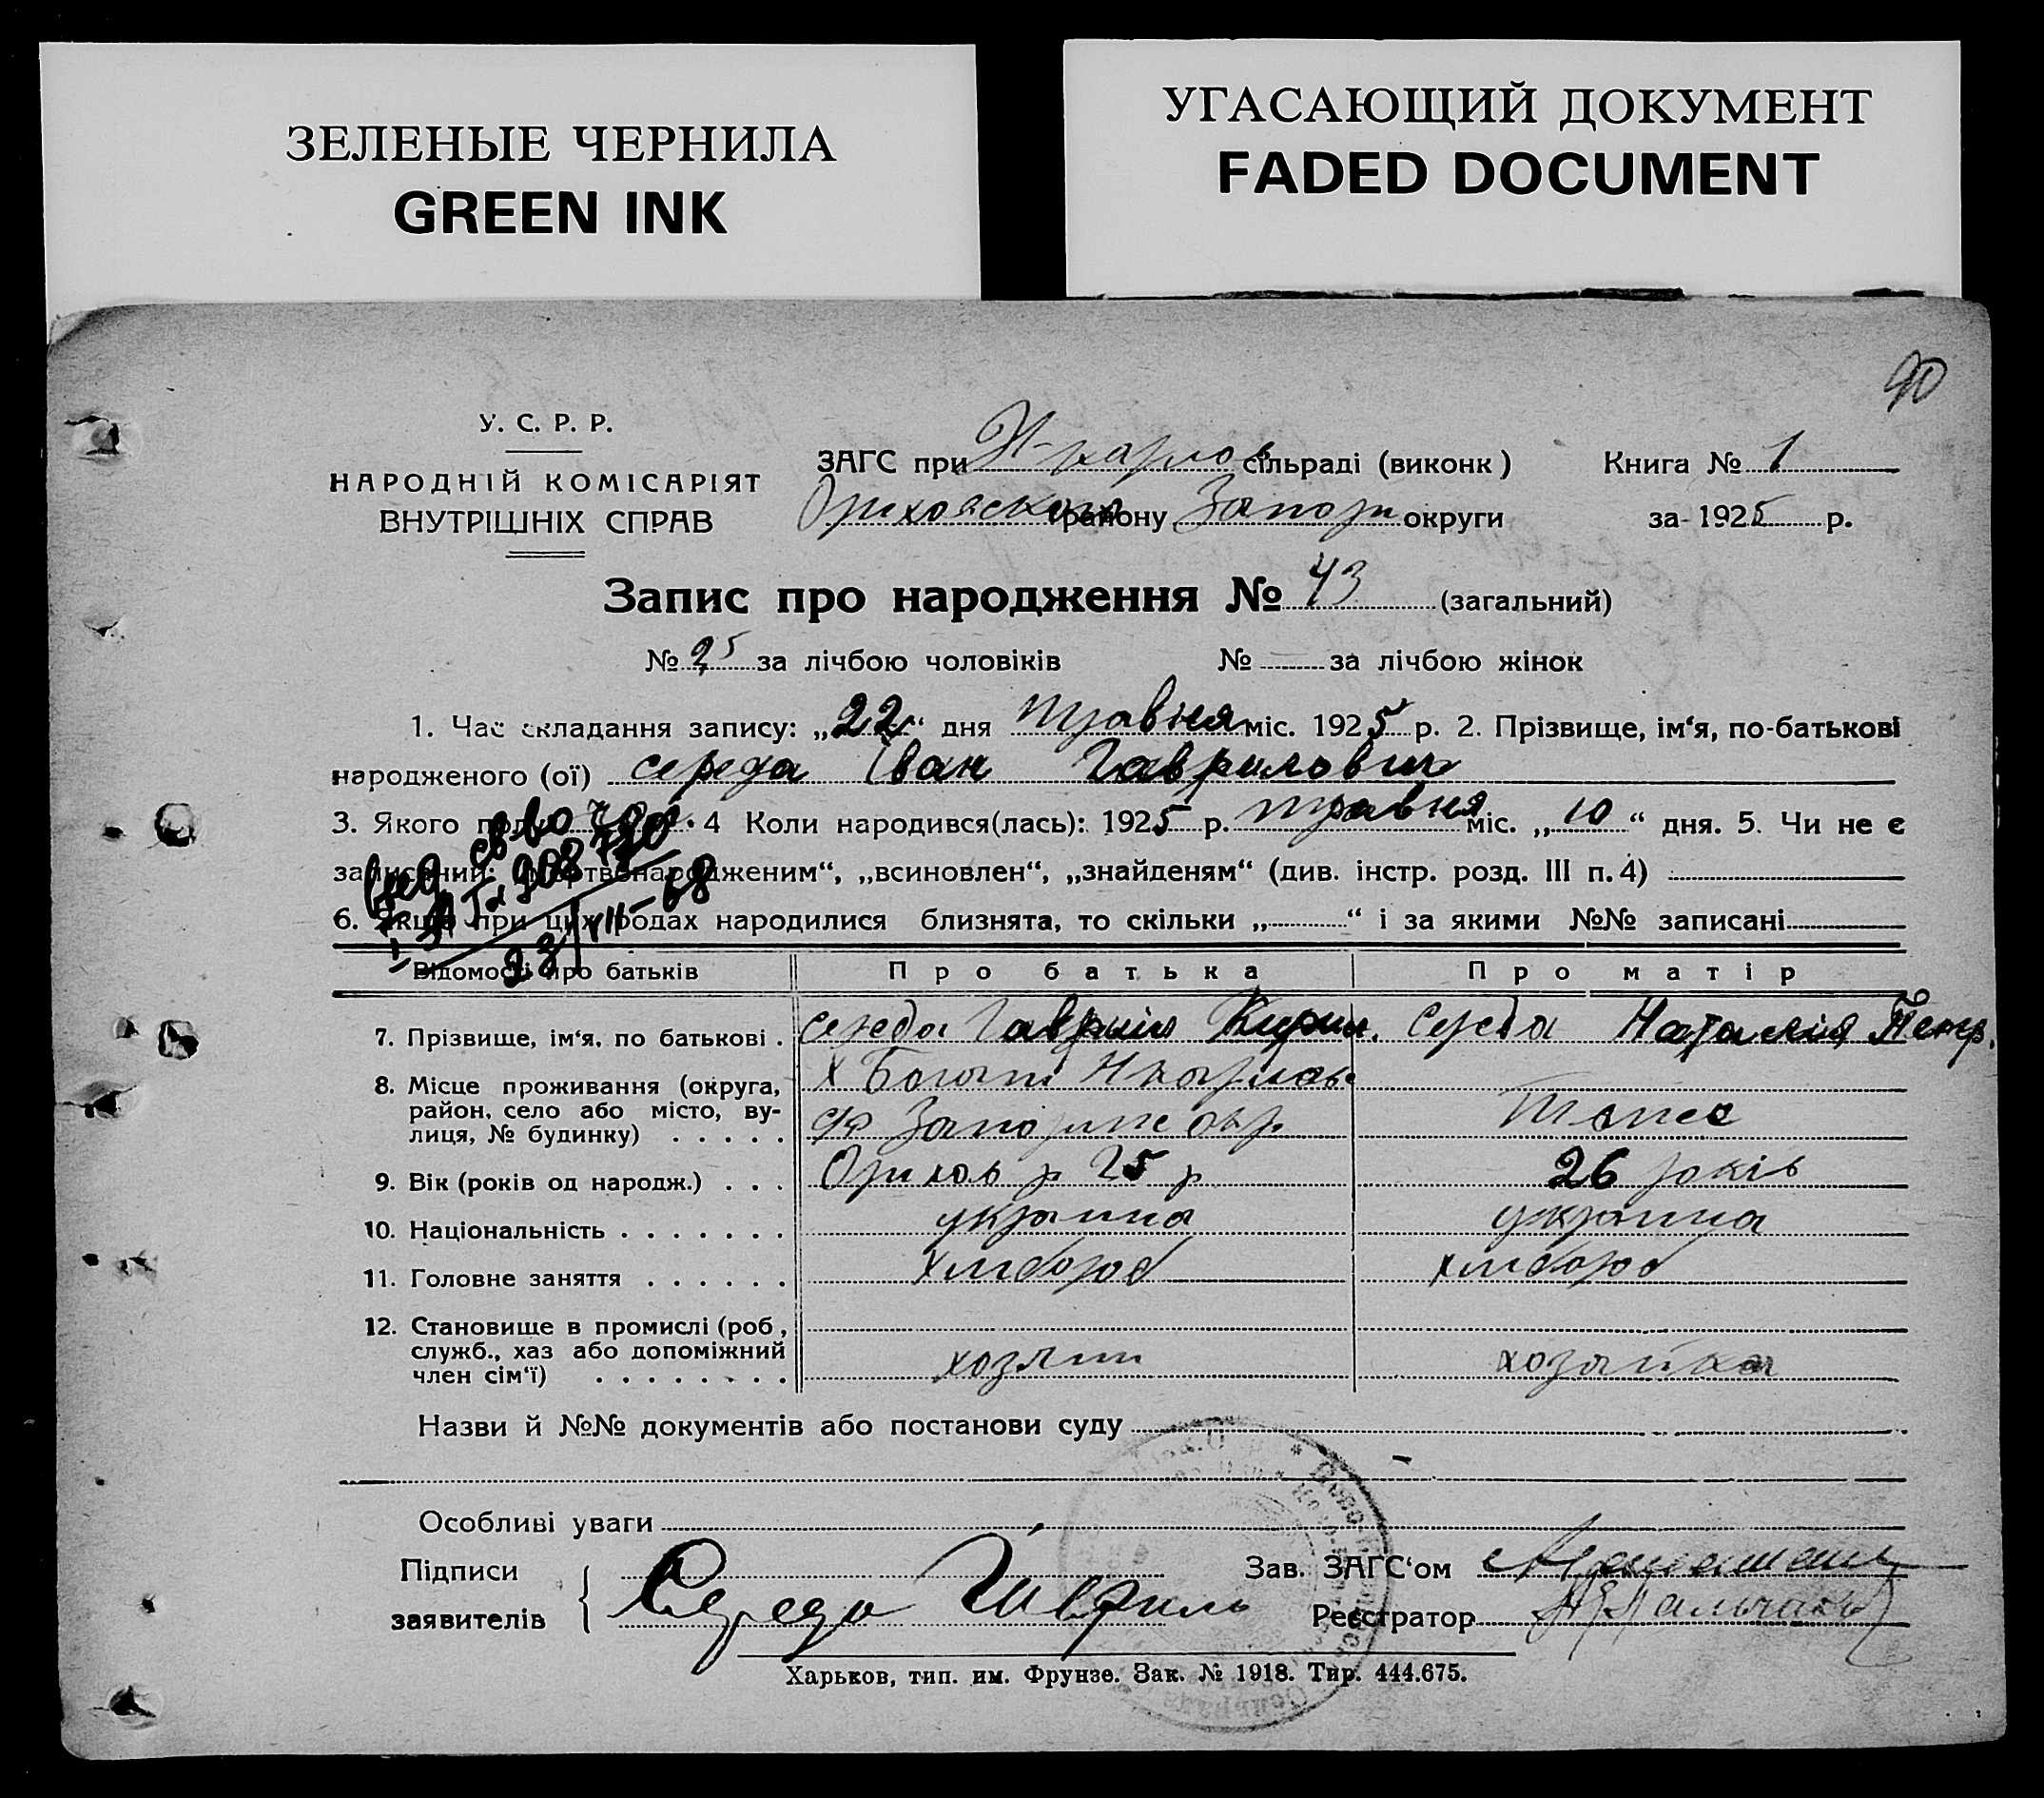 ЗЕЛЕНЫЕ ЧЕРНИЛА
GREEN INK
УГАСАЮЩИЙ ДОКУМЕНТ
FADED DOCUMENT
90
У. С. Р. Р.
НАРОДНІЙ КОМІСАРІЯТ
ВНУТРІШНІХ СПРАВ
ЗАГС при Н-карлов сільраді (виконк) Книга № 1
Оріховского району Запорж округи за 1925 р.
Запис про народження № 43 (загальний)
№ 25 за лічбою чоловіків № за лічбою жінок
1. Час складання запису: „22“ дня травня міс. 1925 р. 2. Прізвище, ім‘я, по-батькові
народженого (ої) середа Іван Гаврилович
3. Якого полу чол. 4 Коли народився(лась): 1925 р. травня міс. „10“ дня. 5. Чи не є
записаний: „мертвонародженим“, „всиновлен“, „знайденям“ (див. інстр. розд. III п. 4)
6. Якщо при цих родах народилися близнята, то скільки „ “ і за якими №№ записані
908770
23/VII-68
Відомості про батьків Про батька Про матір
7. Прізвище, ім‘я, по батькові . середа Гавриїл Кирил. Середа Наталія Петр.
8. Місце проживання (округа, район, село або місто, вулиця, № будинку) . . . . . Х Богаті Нкарлов Запоріже окр. Тоже
9. Вік (років од народж.) . . . Оріхов р 25 р 26 років
10. Національність . . . . . . . україниа україниа
11. Головне заняття . . . . . . хлібороб хлібороб
12. Становище в промислі (роб, служб., хаз або допоміжний член сім‘ї) . . . . . . . . хозяін хозяйка
Назви й №№ документів або постанови суду
Особливі уваги
Підписи заявителів Середа Гавриль
Зав. ЗАГС‘ом
Реєстратор
Харьков, тип. им. Фрунзе. Зак. № 1918. Тир. 444.675.